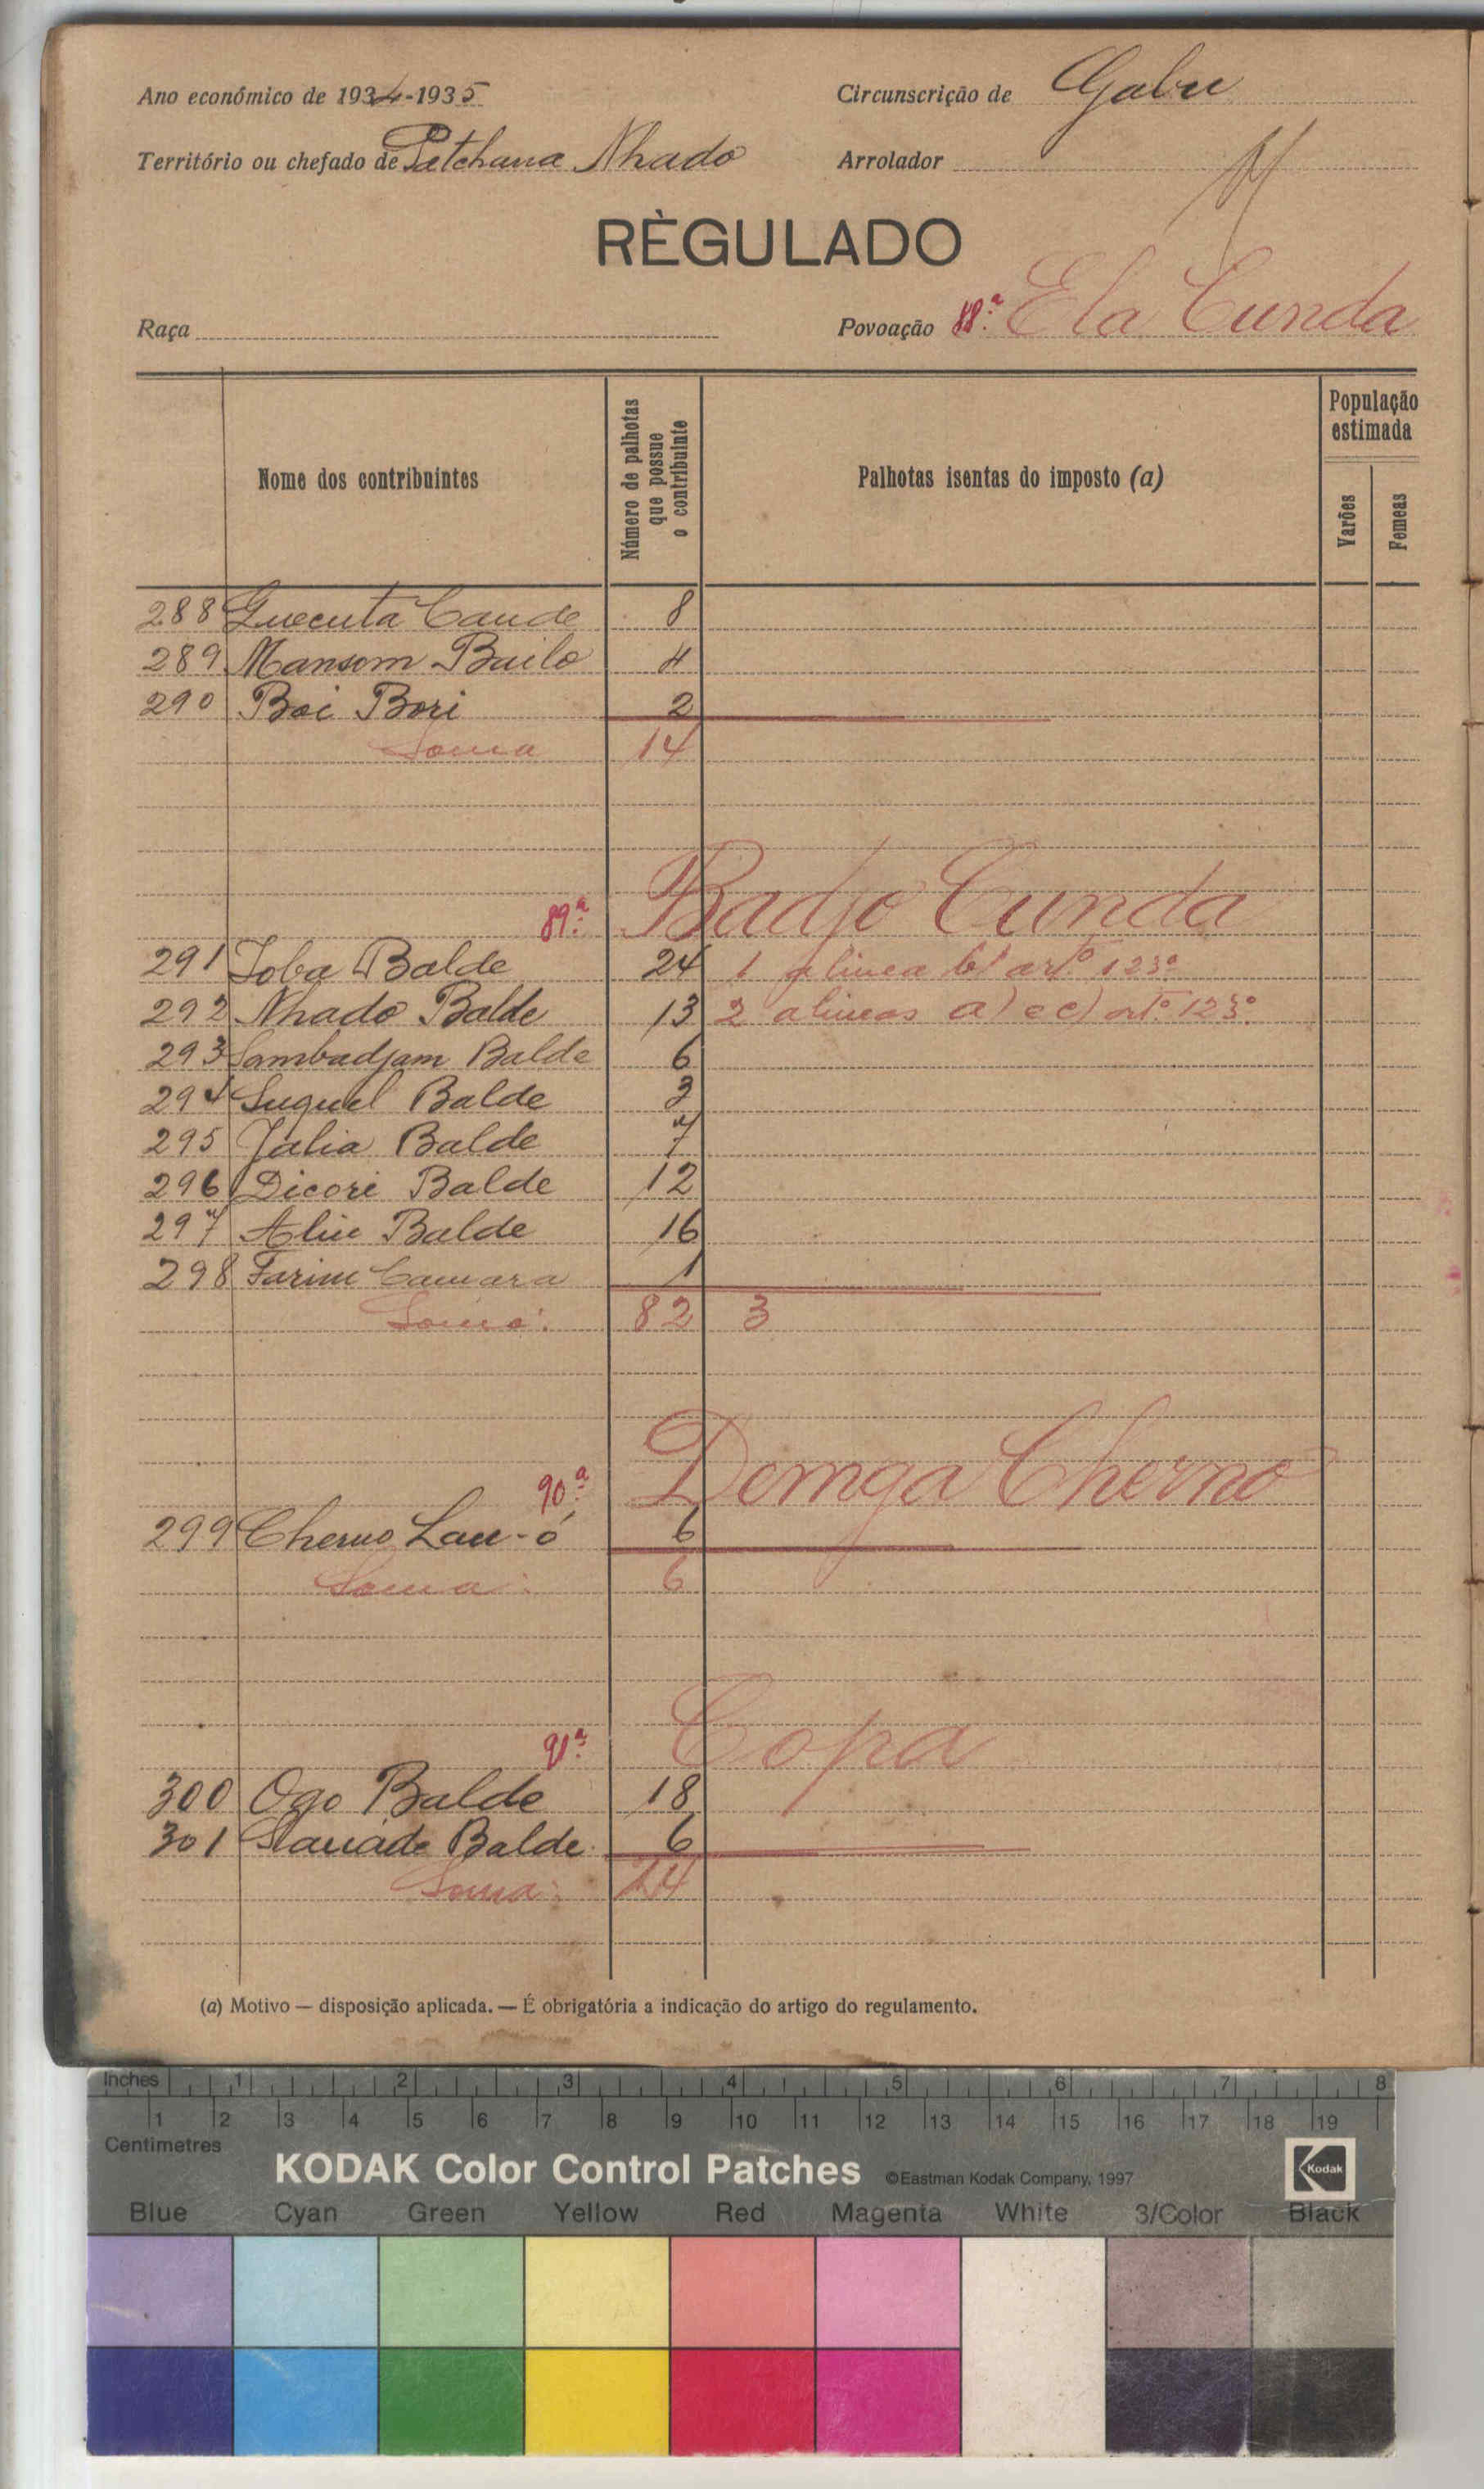 Ano económico de 1934-1935
Circunscrição de Gabu
Território ou chefado de Patchana Nhado
Arrolador
RÈGULADO
Raça
Povoação 88.ª Ela Cunda
Nome dos contribuintes
Número de palhotas que possue o contribuinte
Palhotas isentas do imposto (a)
População estimada
Varões
Femeas
288 Guecuta Cande 8
289 Mansom Bailo 4
290 Boi Bori 2
Soma 14
89.ª Badjo Cunda
291 Joba Balde 24 1 alinea b) art.º 123º
292 Nhado Balde 13 2 alineas a) e c) art.º 123º
293 Sambadjam Balde 6
294 Suguel Balde 3
295 Jalia Balde 7
296 Dicori Balde 12
297 Aliu Balde 16
298 Farim Camara 1
Soma: 82 3
90.ª Demga Cherno
299 Cherno Lau-ó 6
Soma: 6
91.ª Copa
300 Ogo Balde 18
301 Balde 6
Soma: 24
(a) Motivo — disposição aplicada. — É obrigatória a indicação do artigo do regulamento.
Inches 1 2 3 4 5 6 7 8
1 2 3 4 5 6 7 8 9 10 11 12 13 14 15 16 17 18 19
Centimetres
KODAK Color Control Patches ©Eastman Kodak Company, 1997 Kodak
Blue Cyan Green Yellow Red Magenta White 3/Color Black